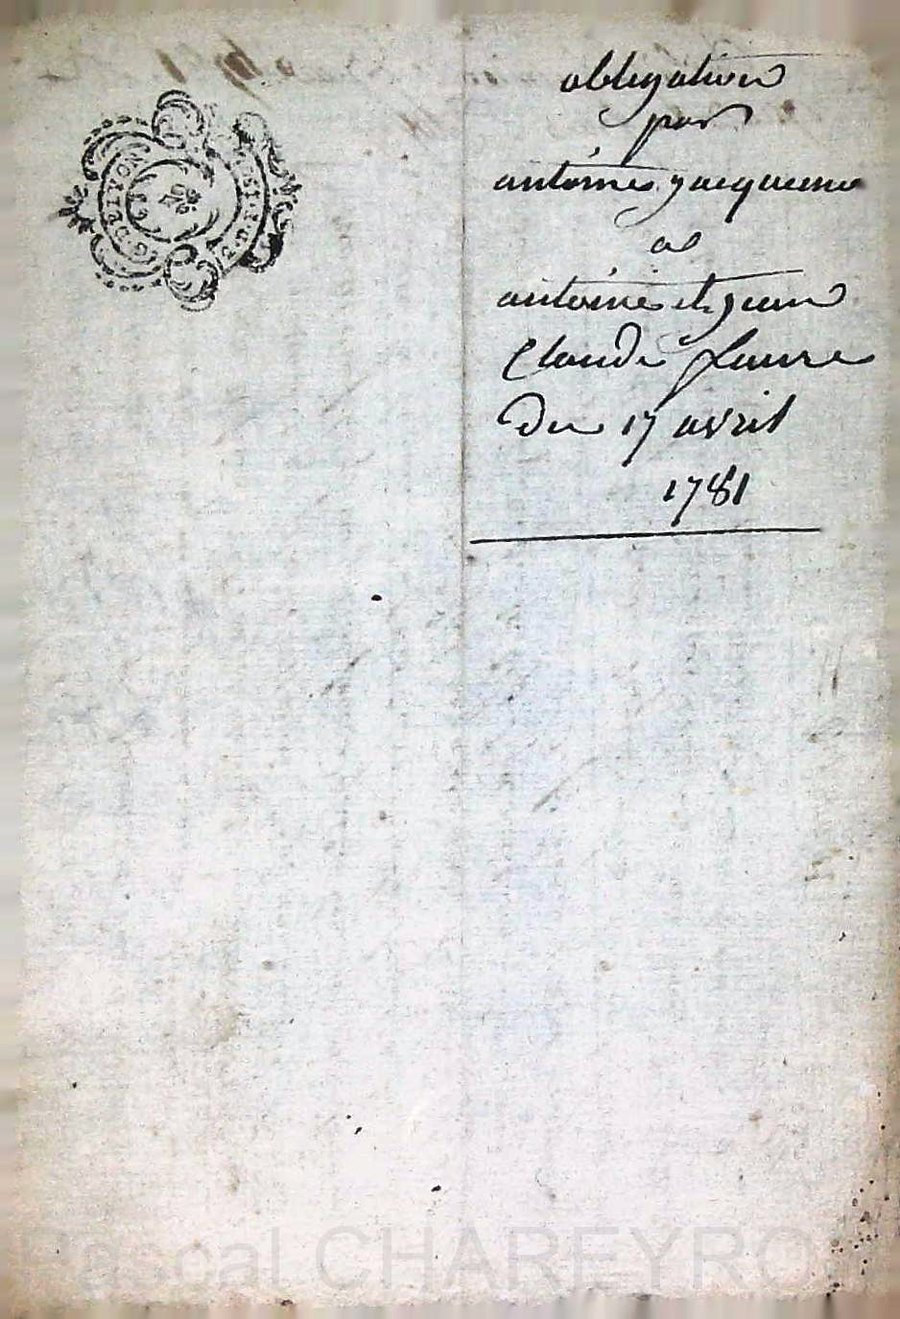 G. DE LYON
obligation
par
antoine jacqueme
a
antoine et jean
Claude faure
du 17 avril
1781
Pascal CHAREYRO